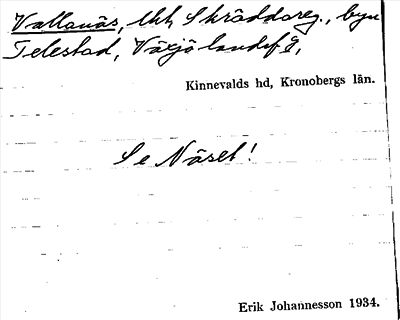 Vallanäs, tht, Skräddareg., byn
Telestad, Växjö landsf g,
Kinnevalds hd, Kronobergs län.
Se Näset!
Erik Johannesson 1934.